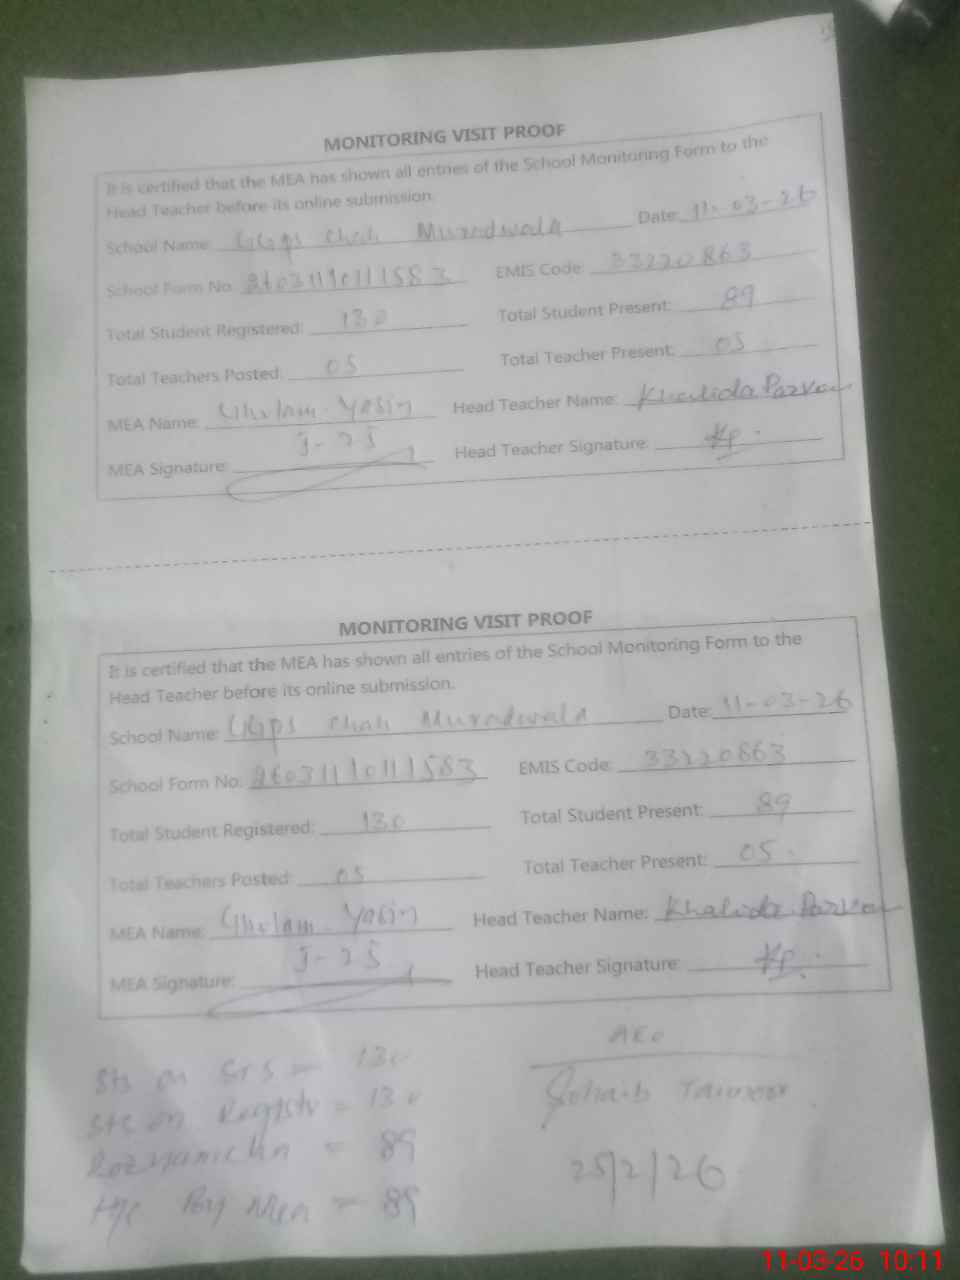 MONITORING VISIT PROOF
It is certified that the MEA has shown all entries of the School Monitoring Form to the
Head Teacher before its online submission.
School Name: GGPS Chah Muradwala Date: 11-03-26
School Form No: 26031110111583 EMIS Code: 33220863
Total Student Registered: 130 Total Student Present: 89
Total Teachers Posted: 05 Total Teacher Present: 05
MEA Name: Ghulam Yasin Head Teacher Name: Khalida Parveen
J-25
MEA Signature: Head Teacher Signature: KP.
MONITORING VISIT PROOF
It is certified that the MEA has shown all entries of the School Monitoring Form to the
Head Teacher before its online submission.
School Name: GGPS Chah Muradwala Date: 11-03-26
School Form No: 26031110111583 EMIS Code: 33220863
Total Student Registered: 130 Total Student Present: 89
Total Teachers Posted: 05 Total Teacher Present: 05.
MEA Name: Ghulam Yasin Head Teacher Name: Khalida Parveen
J-25
MEA Signature: Head Teacher Signature: KP.
Sts on SIS = 130
Sts on Registr = 130
= 89
H/c By Mea = 89
AEO
Sohaib Taimoor
25/2/26
11-03-26 10:11